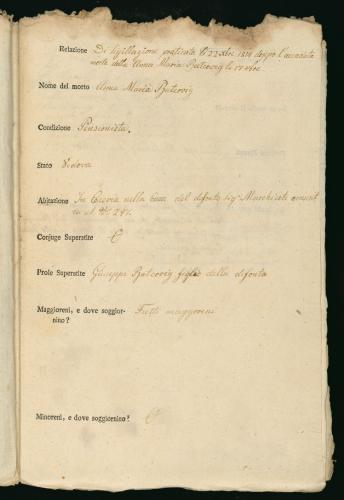 Relazione Di sigillazione praticata li 22 xbre 1814 dopo l'avvenuta
morte della Anna Maria Batcovig li 17 xbre
Nome del morto Anna Maria Batcovig
Condizione Pensionista.
Stato Vedova
Abitazione In nella Casa del difonto Sigr
al No 281.
Conjuge Superstite
Prole Superstite Giuseppe Batcovig figlio della difonta
Maggioreni, e dove soggior- Tutti maggioreni
nino?
Minoreni, e dove soggiornino?